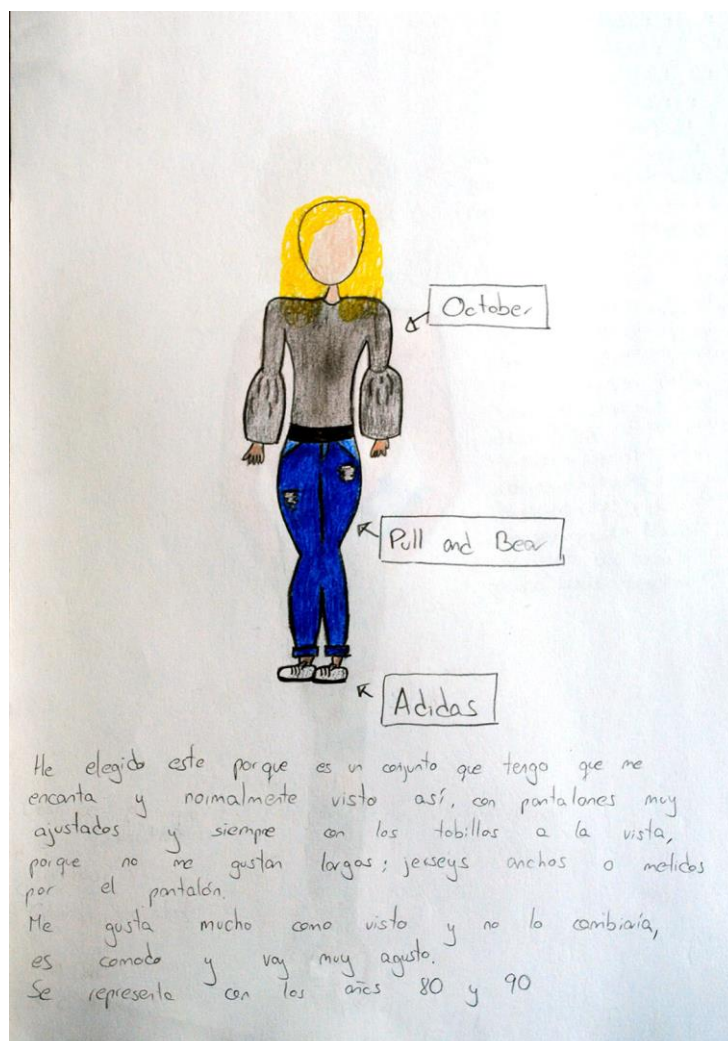 October
Pull and Bear
Adidas
He elegido este porque es un conjunto que tengo que me
encanta y normalmente visto así, con pantalones muy
ajustados y siempre con los tobillos a la vista,
porque no me gustan largos; jerseys anchos o metidos
por el pantalón.
Me gusta mucho como visto y no lo cambiaría,
es comodo y voy muy agusto.
Se representa con los años 80 y 90